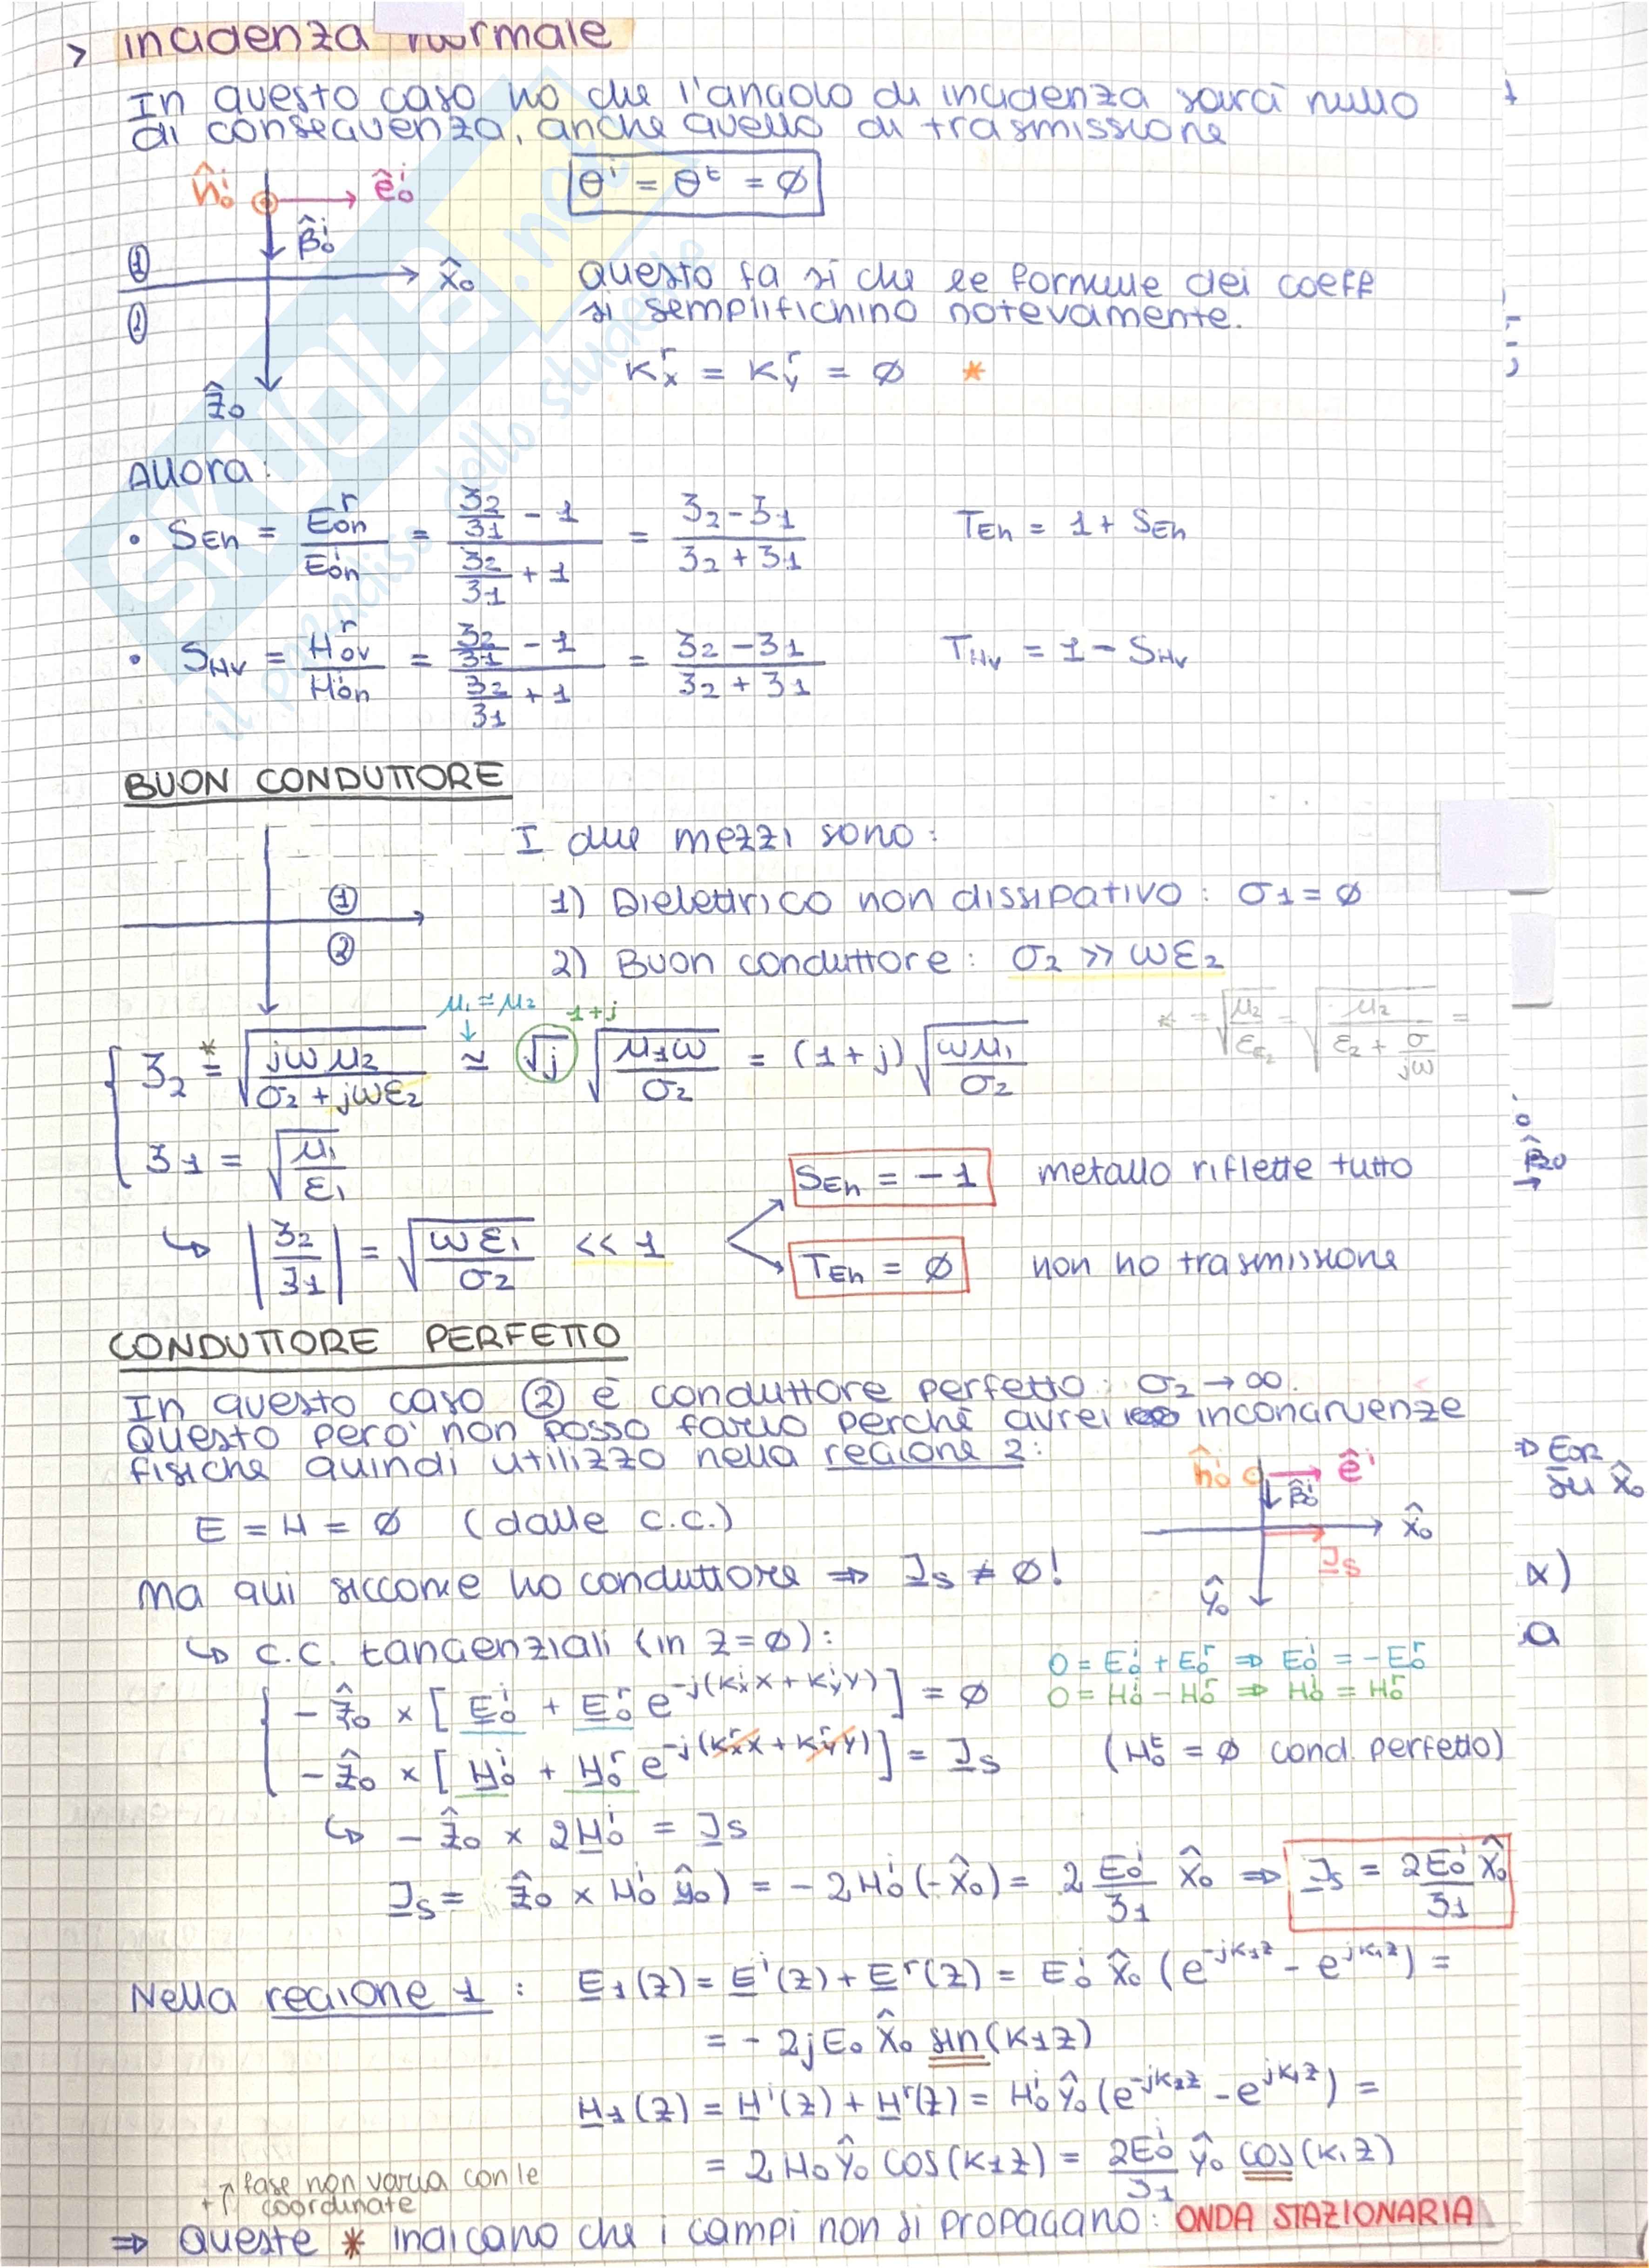 > Incidenza normale
In questo caso ho che l'angolo di incidenza sarà nullo
di conseguenza, anche quello di trasmissione
ĥ₀ⁱ ê₀ⁱ θⁱ = θᵗ = ∅
β̂₀ⁱ
① x̂₀ questo fa sì che le formule dei coeff
② si semplifichino notevamente.
ẑ₀ Kₓʳ = Kᵧʳ = ∅ *
Allora:
• S_Eh = E₀hʳ / E₀hⁱ = (ʒ₂/ʒ₁ - 1) / (ʒ₂/ʒ₁ + 1) = (ʒ₂ - ʒ₁) / (ʒ₂ + ʒ₁) T_Eh = 1 + S_Eh
• S_Hv = H₀vʳ / H₀hⁱ = (ʒ₂/ʒ₁ - 1) / (ʒ₂/ʒ₁ + 1) = (ʒ₂ - ʒ₁) / (ʒ₂ + ʒ₁) T_Hv = 1 - S_Hv
BUON CONDUTTORE
I due mezzi sono:
① 1) Dielettrico non dissipativo: σ₁ = ∅
② 2) Buon conduttore: σ₂ >> ωε₂
μ₁ ≃ μ₂ 1+j
ʒ₂ =* √(jωμ₂ / (σ₂ + jωε₂)) ≃ √j √(μ₁ω / σ₂) = (1+j) √(ωμ₁ / σ₂) * = √(μ₂ / ε_c₂) = √(μ₂ / (ε₂ + σ/jω)) =
ʒ₁ = √(μ₁ / ε₁)
S_Eh = -1 metallo riflette tutto
↳ |ʒ₂/ʒ₁| = √(ωε₁ / σ₂) << 1
T_Eh = ∅ non ho trasmissione
CONDUTTORE PERFETTO
In questo caso ② è conduttore perfetto: σ₂ → ∞.
Questo però non posso farlo perchè avrei incongruenze
fisiche quindi utilizzo nella regione 2:
ĥ₀ⁱ êⁱ
β̂₀ⁱ
E = H = ∅ (dalle c.c.) x̂₀
J_s
Ma qui siccome ho conduttore ⇒ J_s ≠ ∅! ŷ₀
↳ c.c. tangenziali (in z=∅):
0 = E₀ⁱ + E₀ʳ ⇒ E₀ⁱ = -E₀ʳ
-ẑ₀ × [E₀ⁱ + E₀ʳ e^(-j(Kₓⁱx + Kᵧⁱy))] = ∅ 0 = H₀ⁱ - H₀ʳ ⇒ H₀ⁱ = H₀ʳ
-ẑ₀ × [H₀ⁱ + H₀ʳ e^(-j(Kₓʳx + Kᵧʳy))] = J_s (H₀ᵗ = ∅ cond. perfetto)
↳ -ẑ₀ × 2H₀ⁱ = J_s
J_s = ẑ₀ × H₀ⁱ ŷ₀) = -2H₀ⁱ(-x̂₀) = 2 E₀ⁱ/ʒ₁ x̂₀ ⇒ J_s = 2E₀ⁱ/ʒ₁ x̂₀
Nella regione 1: E₁(z) = Eⁱ(z) + Eʳ(z) = E₀ⁱ x̂₀ (e^(-jK₁z) - e^(jK₁z)) =
= -2jE₀ x̂₀ sin(K₁z)
H₁(z) = Hⁱ(z) + Hʳ(z) = H₀ⁱ ŷ₀ (e^(-jK₁z) - e^(jK₁z)) =
= 2H₀ŷ₀ cos(K₁z) = 2E₀ⁱ/ʒ₁ ŷ₀ cos(K₁z)
fase non varia con le
coordinate
⇒ Queste * indicano che i campi non si propagano: ONDA STAZIONARIA
β̂₀
⇒ E₀r
su x̂₀
x)
a
SKUOLA.net
il paradiso dello studente